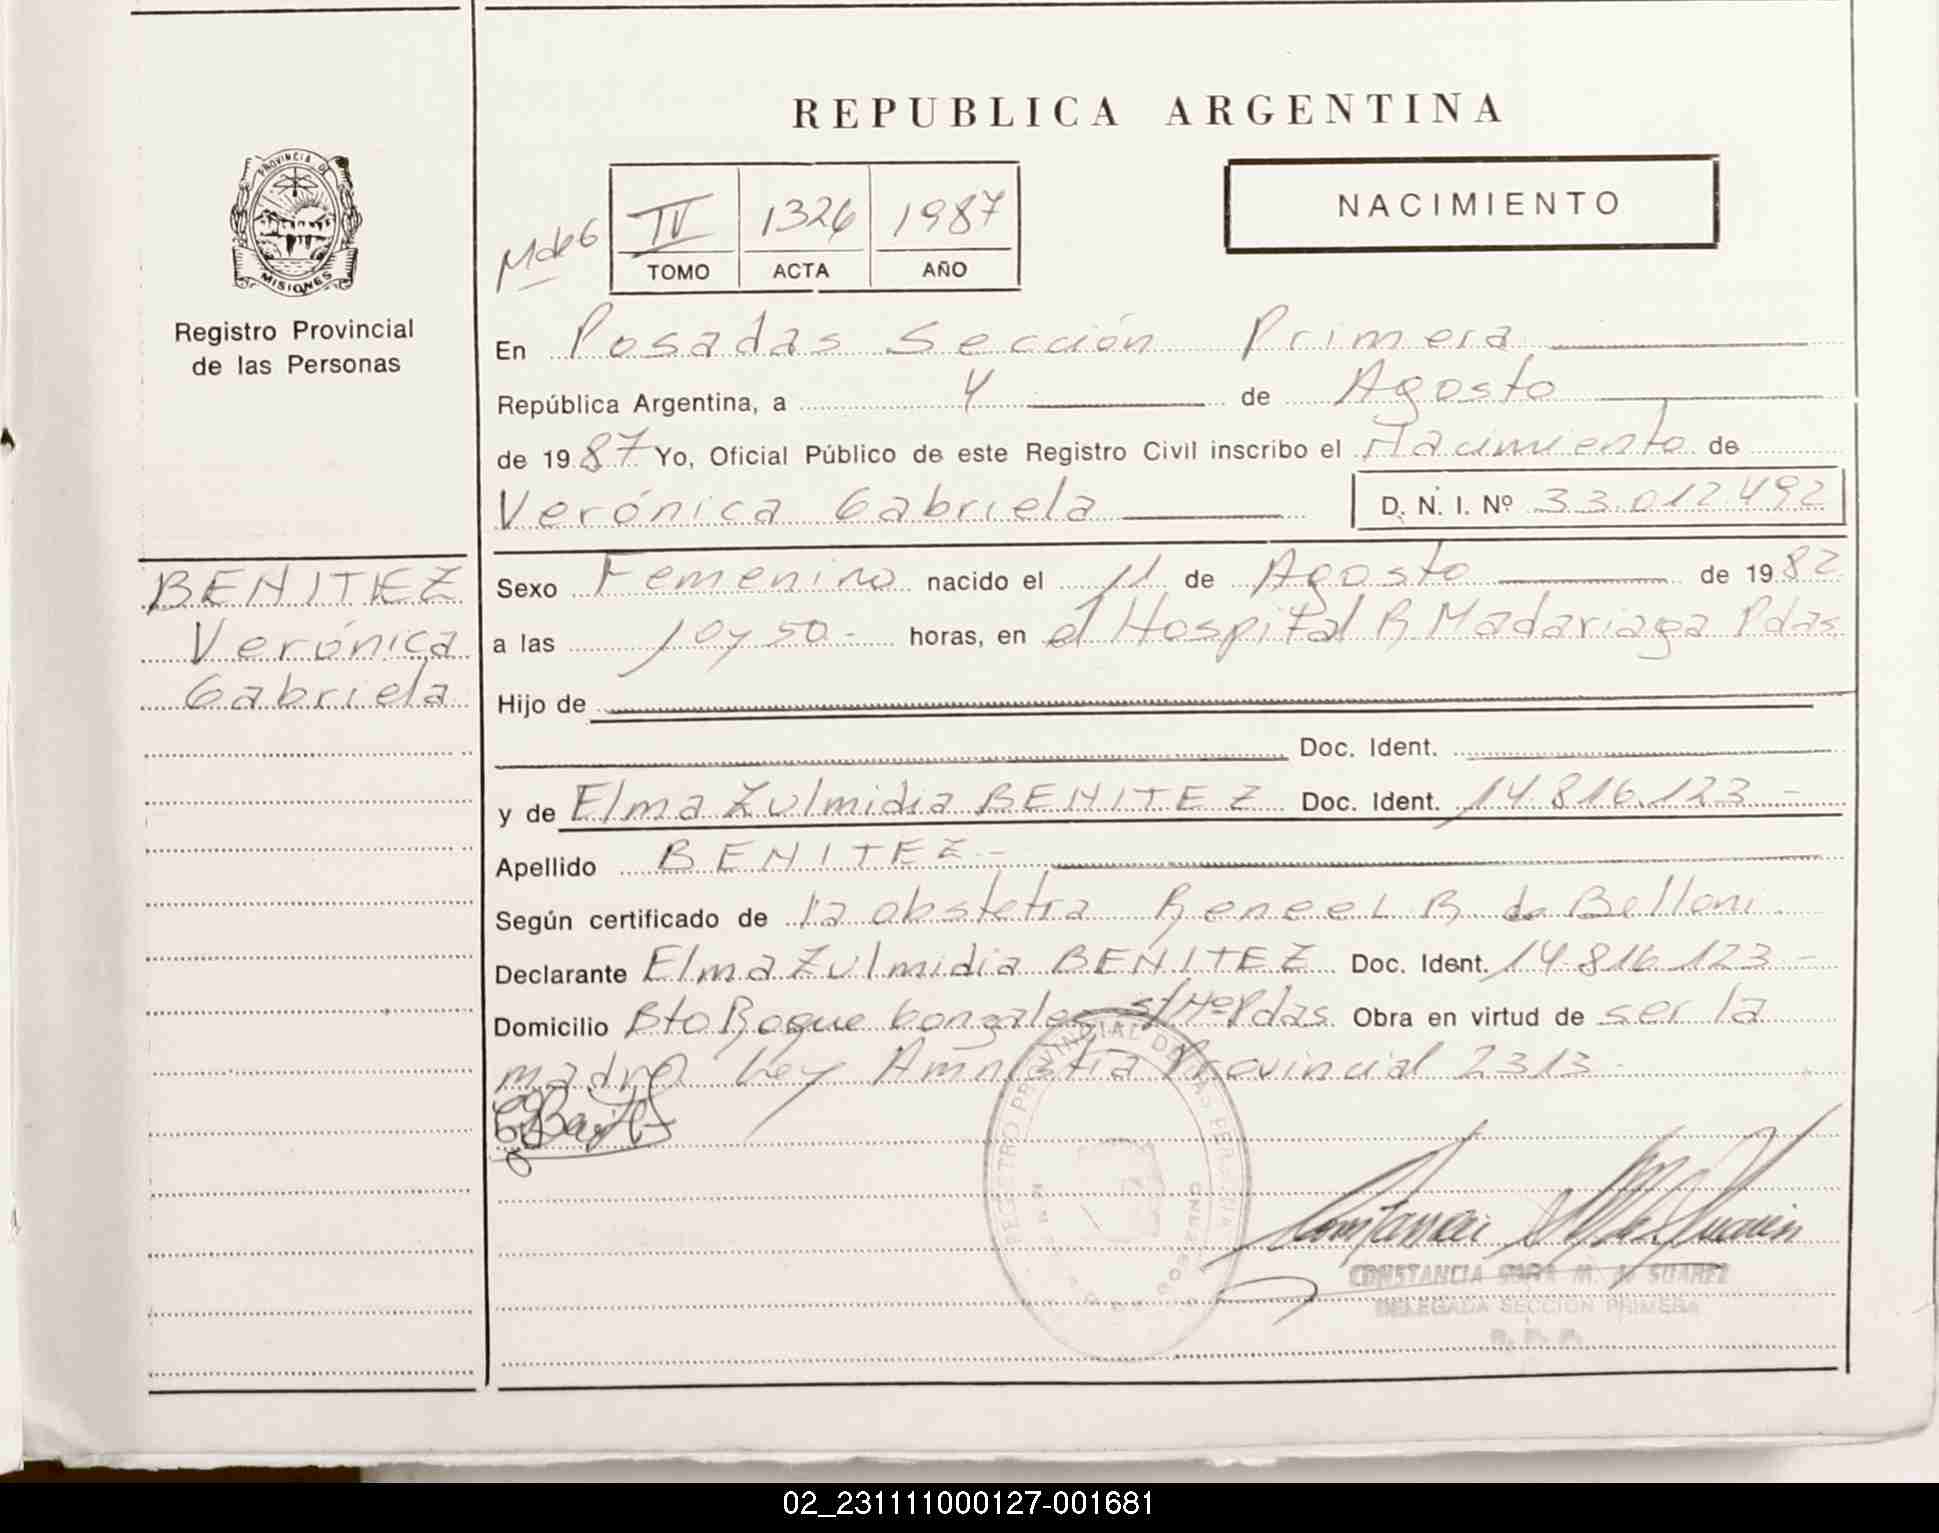 REPUBLICA ARGENTINA
PROVINCIA DE
MISIONES
Registro Provincial
de las Personas
IV 1326 1987
TOMO ACTA AÑO
NACIMIENTO
En Posadas Sección Primera
República Argentina, a 4 de Agosto
de 1987 Yo, Oficial Público de este Registro Civil inscribo el Nacimiento de
Verónica Gabriela D. N. I. Nº 33.012.492
BENITEZ
Verónica
Gabriela
Sexo Femenino nacido el 11 de Agosto de 1982
a las 10 y 50.- horas, en el Hospital R Madariaga Pdas
Hijo de
Doc. Ident.
y de Elma Zulmidia BENITEZ Doc. Ident. 14.816.123 -
Apellido BENITEZ -
Según certificado de la obstetra Renee L B de Belloni.
Declarante Elma Zulmidia BENITEZ Doc. Ident. 14.816.123 -
Domicilio Bto Roque Gonzalez s/Nº Pdas. Obra en virtud de ser la
madre Ley Amnistia Provincial 2313.
REGISTRO PROVINCIAL DE LAS PERSONAS
CONSTANCIA SARA M. de SUAREZ
DELEGADA SECCION PRIMERA
R. P. P.
02_231111000127-001681